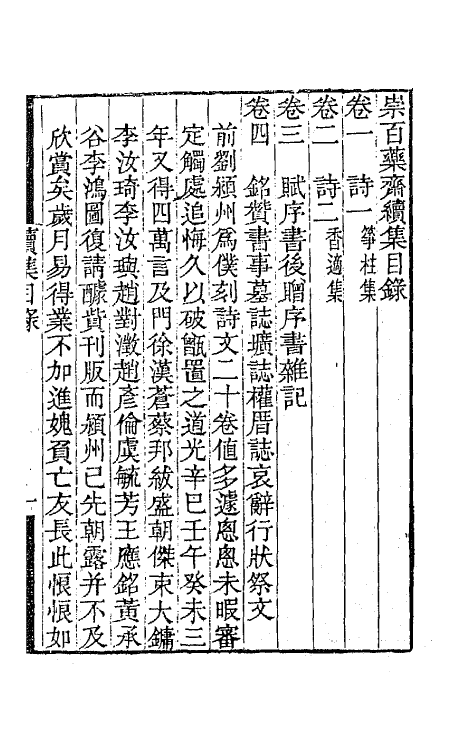 崇百藥齋續集目錄
卷一　詩一　箏柱集
卷二　詩二　香適集
卷三　賦序書後贈序書雜記
卷四　銘贊書事墓誌壙誌權厝誌哀辭行狀祭文
前劉潁州爲僕刻詩文二十卷値多遽悤悤未暇審
定觸處追悔久以破甑置之道光辛巳壬午癸未三
年又得四萬言及門徐漢蒼蔡邦紱盛朝傑束大鏞
李汝琦李汝璵趙對澂趙彥倫虞毓芳王應銘黃承
谷李鴻圖復請醵貲刊版而潁州已先朝露并不及
欣賞矣歲月易得業不加進媿負亡友長此悢悢如
續集目錄　一